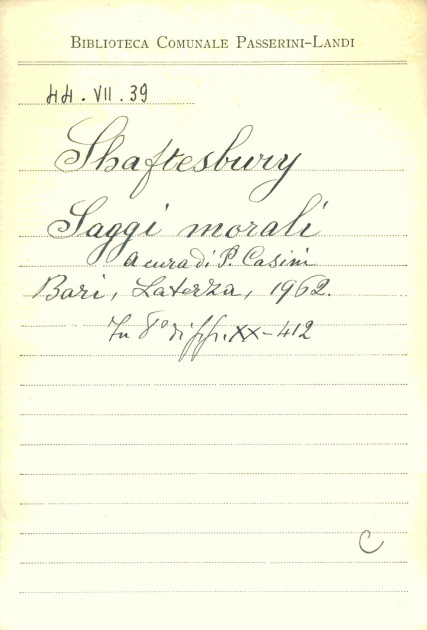 BIBLIOTECA COMUNALE PASSERINI-LANDI
44. VII. 39
Shaftesbury
Saggi morali
a cura di P. Casini
Bari, Laterza, 1962.
In 8° di pp. XX-412
C